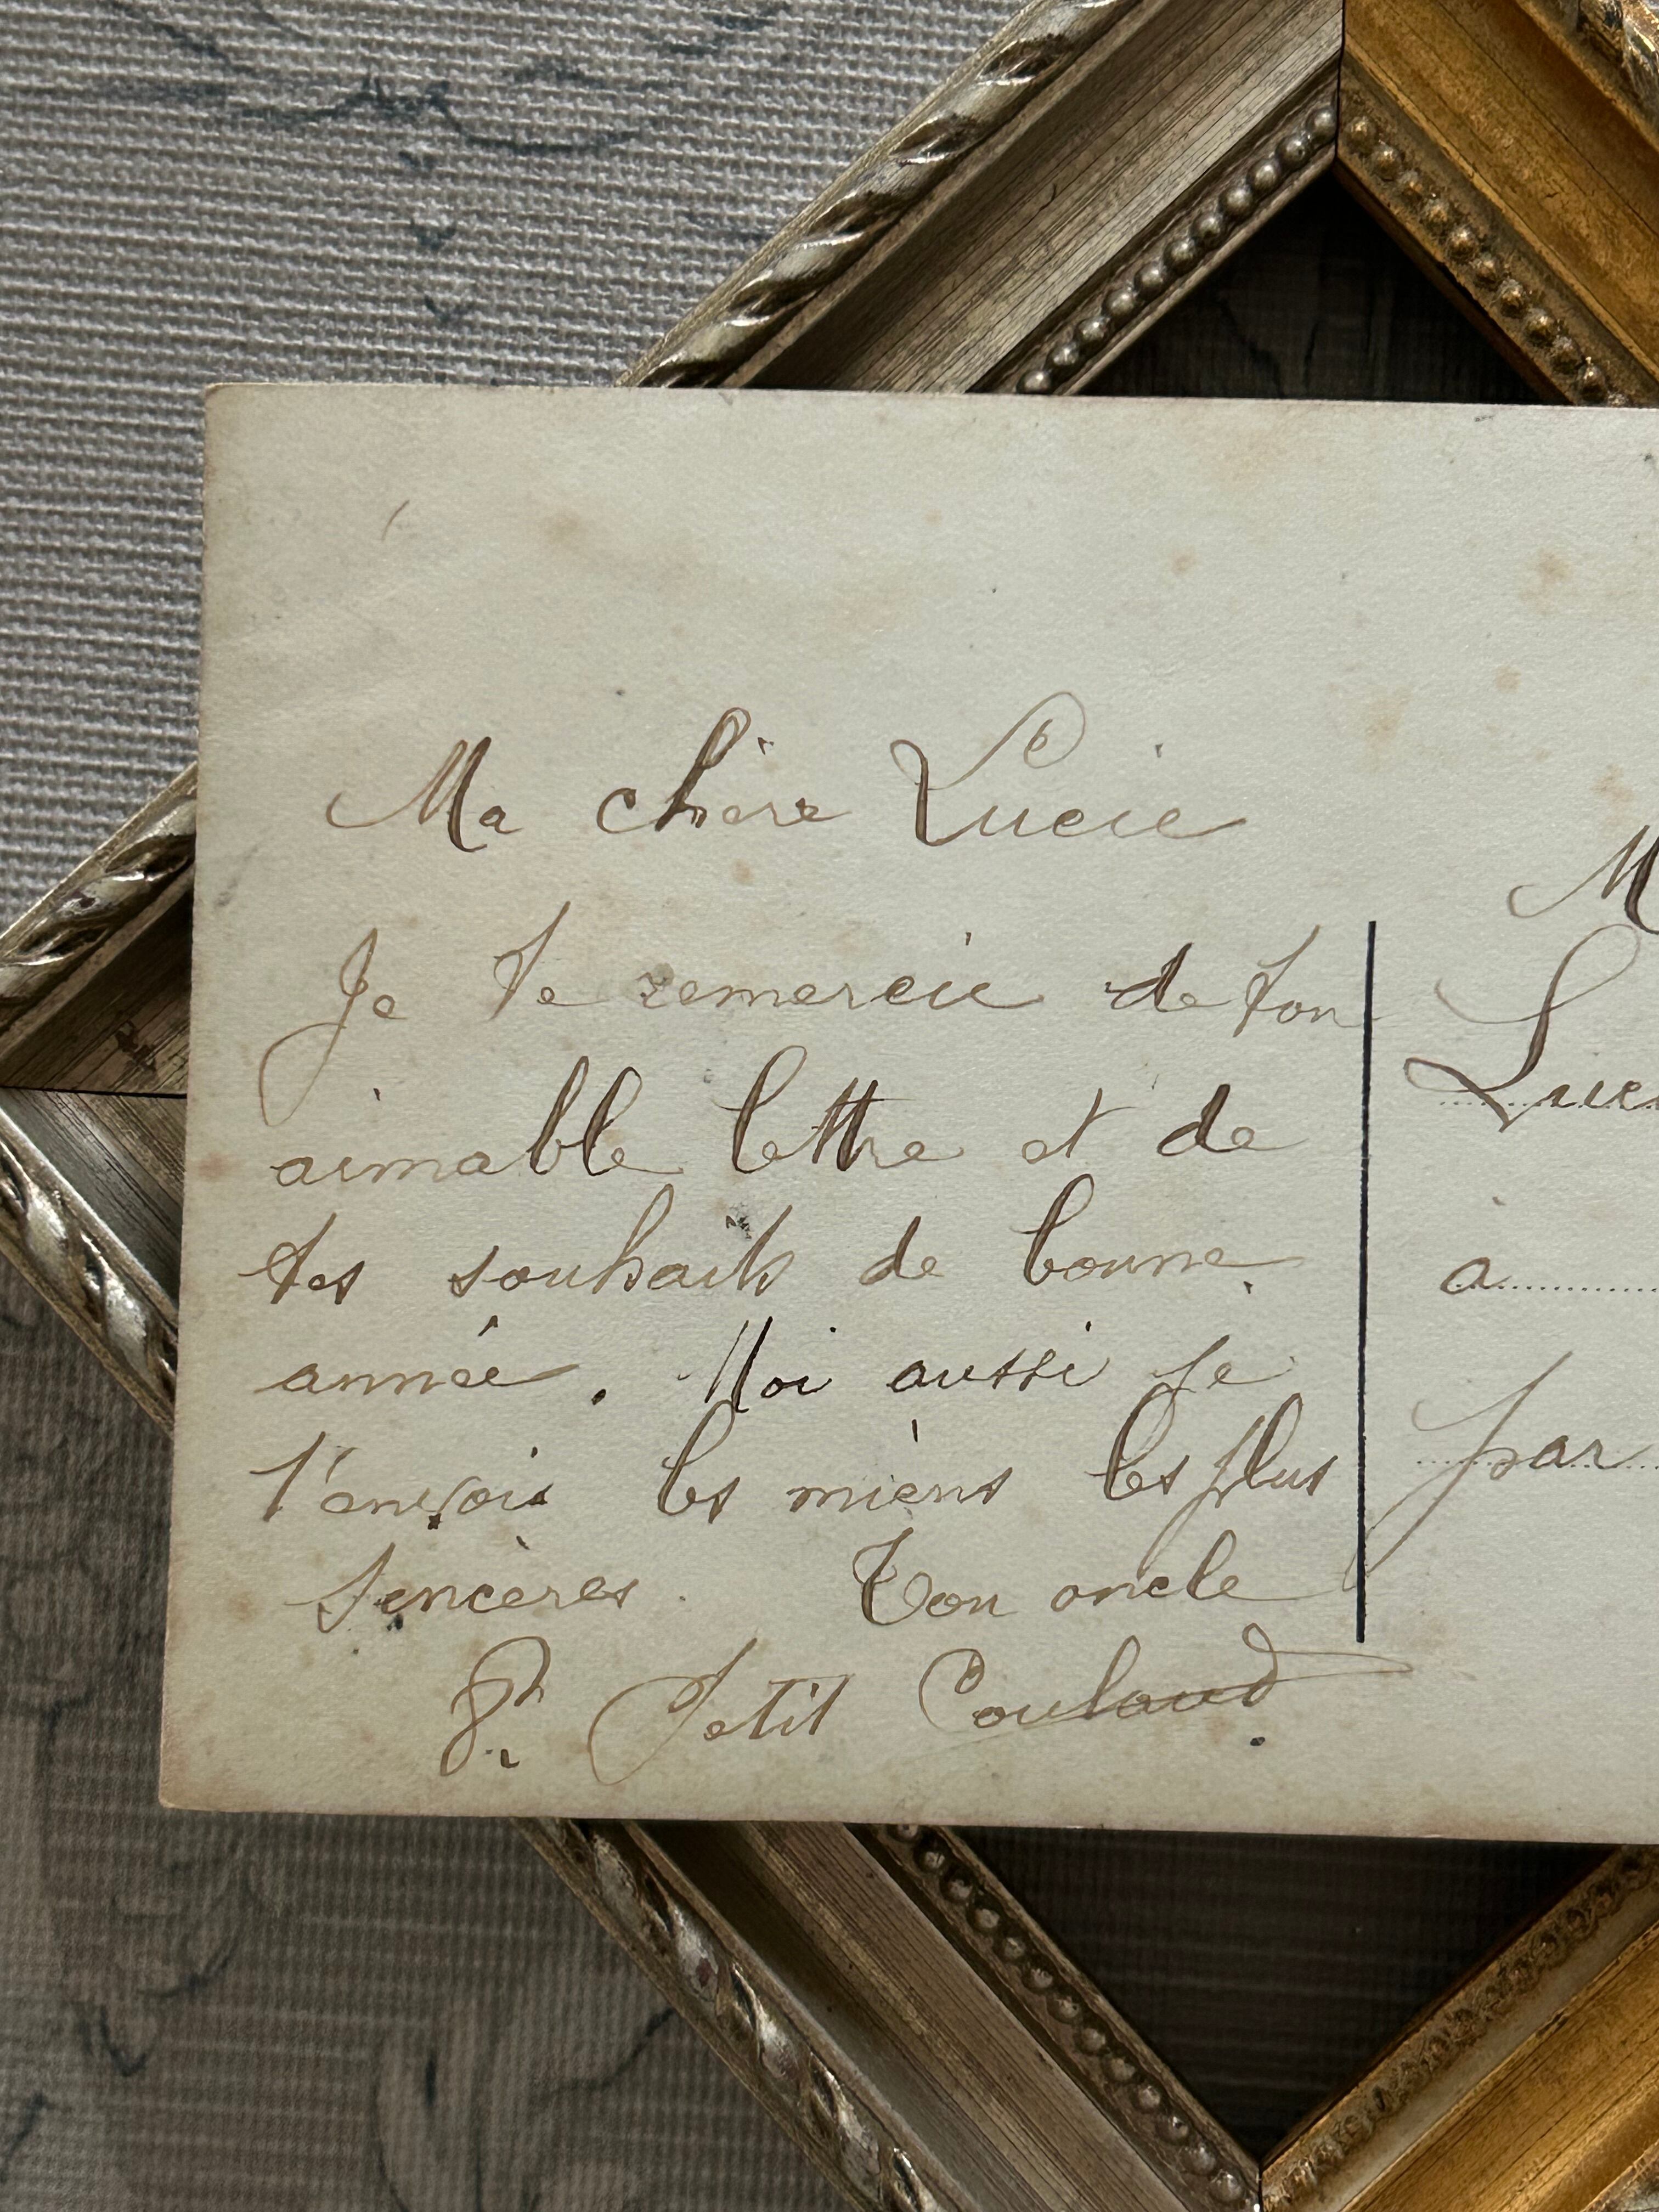 Ma chère Lucie
Je te remercie de ton
aimable lettre et de
tes souhaits de bonne
année. Moi aussi je
t'envois les miens les plus
sencères. Ton oncle
P. Petit Coulaud.
M
Luci
à
par